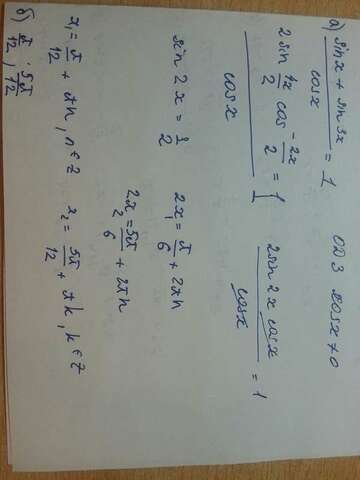 а) (sin x + sin 3x)/cos x = 1    ОДЗ cos x ≠ 0
(2 sin 4x/2 cos -2x/2)/cos x = 1    (2 sin 2x cos x)/cos x = 1
sin 2x = 1/2    2x₁ = π/6 + 2πn
2x₂ = 5π/6 + 2πn
x₁ = π/12 + πn, n ∈ Z    x₂ = 5π/12 + πk, k ∈ Z
б) π/12, 5π/12